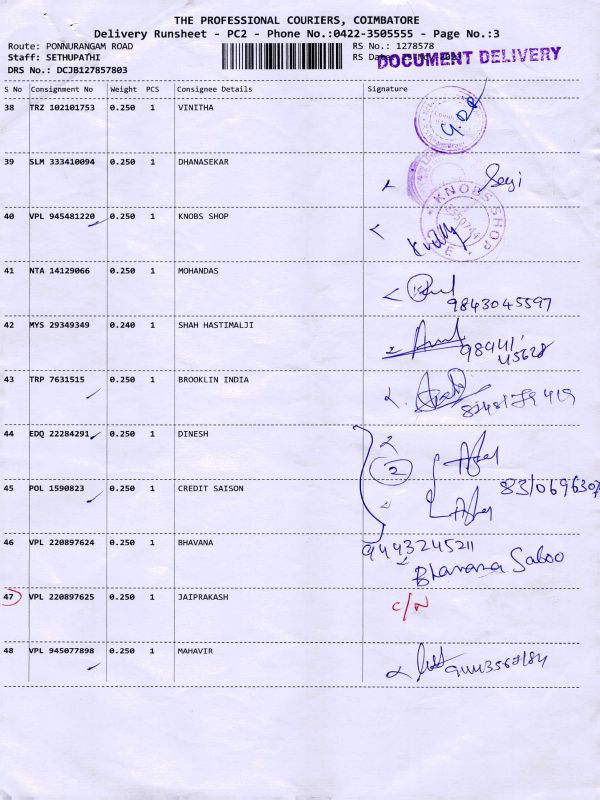 THE PROFESSIONAL COURIERS, COIMBATORE
Delivery Runsheet - PC2 - Phone No.:0422-3505555 - Page No.:3
Route: PONNURANGAM ROAD RS No.: 1278578
Staff: SETHUPATHI RS Date: DOCUMENT DELIVERY
DRS No.: DCJB127857803
S No Consignment No Weight PCS Consignee Details Signature
38 TRZ 102101753 0.250 1 VINITHA
39 SLM 333410094 0.250 1 DHANASEKAR
40 VPL 945481220 0.250 1 KNOBS SHOP KNOBS SHOP
41 NTA 14129066 0.250 1 MOHANDAS
9843045597
42 MYS 29349349 0.240 1 SHAH HASTIMALJI
98941
45628
43 TRP 7631515 0.250 1 BROOKLIN INDIA
44 EDQ 22284291 0.250 1 DINESH
2
8310696307
45 POL 1590823 0.250 1 CREDIT SAISON
46 VPL 220897624 0.250 1 BHAVANA 9443245211
Bhavana Saboo
47 VPL 220897625 0.250 1 JAIPRAKASH C/N
48 VPL 945077898 0.250 1 MAHAVIR